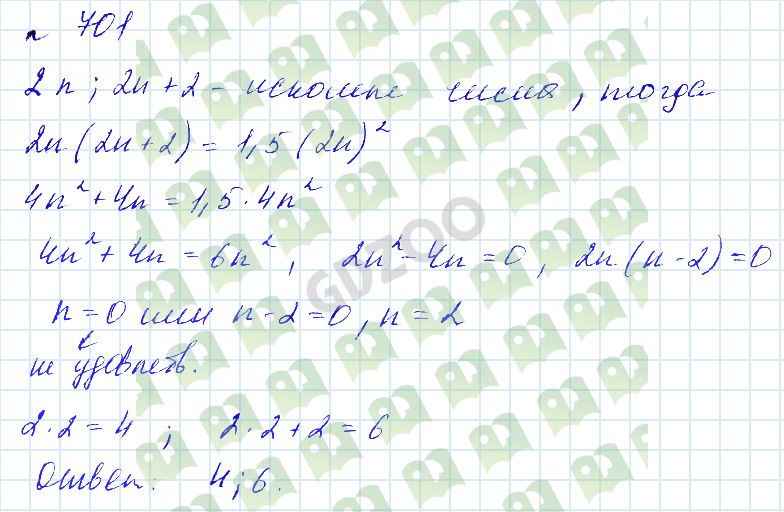 № 701
2n; 2n+2 - искомые числа, тогда
2n(2n+2) = 1,5(2n)²
4n²+4n = 1,5·4n²
4n²+4n = 6n², 2n²-4n = 0, 2n(n-2)=0
n=0 или n-2=0, n=2
не удовлетв.
2·2=4; 2·2+2=6
Ответ: 4; 6.
GDZOO